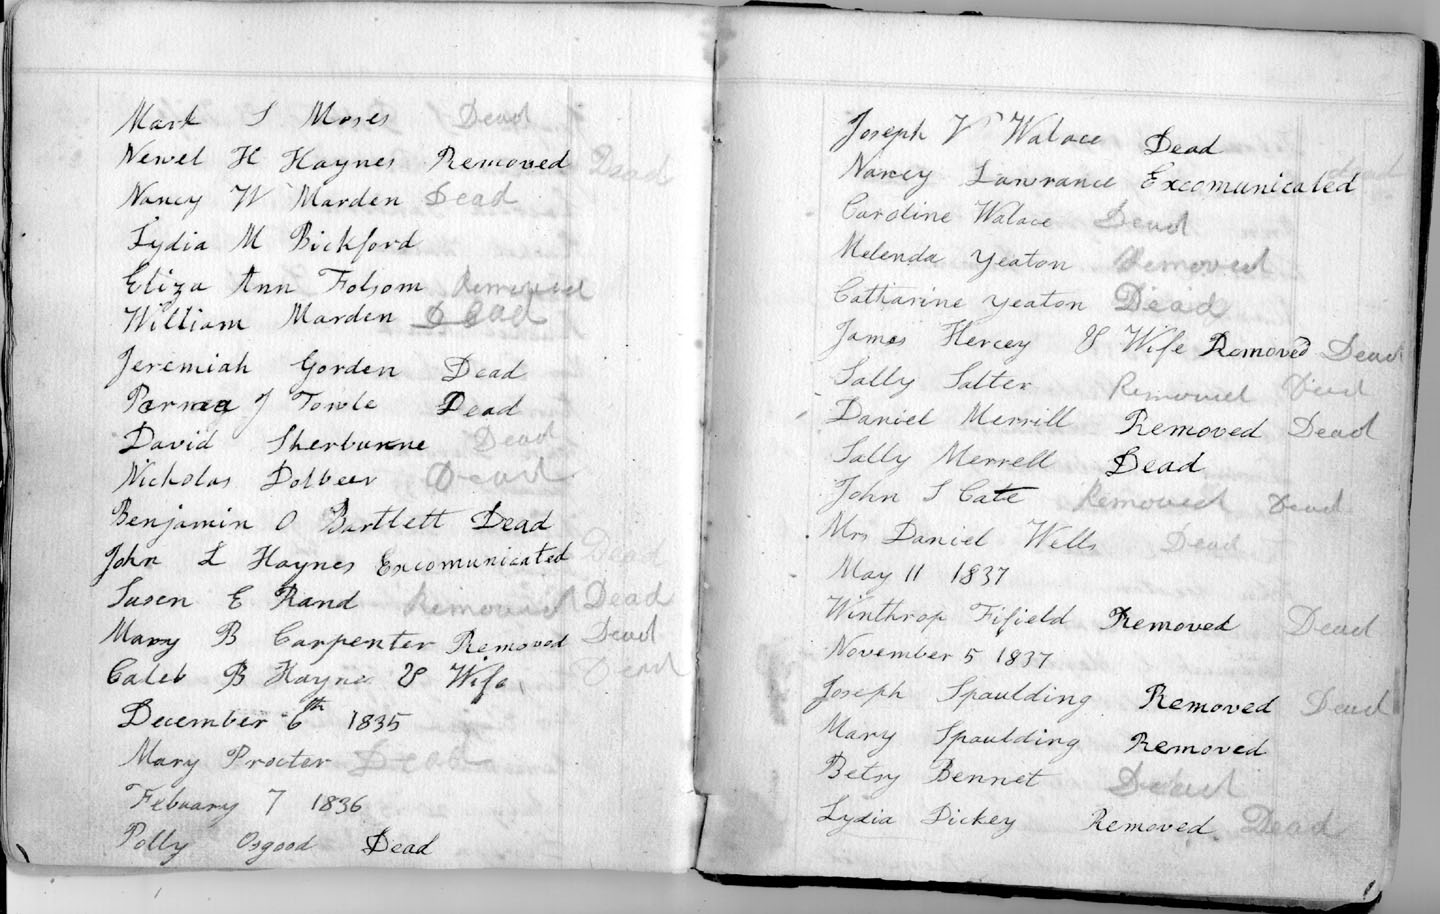 Mark S Moses Dead
Newel H Haynes Removed Dead
Nancy W Marden Dead
Lydia M Bickford
Eliza Ann Folsom Removed
William Marden Dead
Jeremiah Gorden Dead
J Towle Dead
David Sherburne Dead
Nicholas Dolbeer Dead
Benjamin O Bartlett Dead
John L Haynes Excomunicated Dead
Susen E Rand Removed Dead
Mary B Carpenter Removed Dead
Caleb B Haynes & Wife Dead
December 6th 1835
Mary Procter Dead
Febuary 7 1836
Polly Osgood Dead
Joseph W Walace Dead
Nancy Lawrance Excomunicated Dead
Caroline Walace Dead
Melenda Yeaton Removed
Catharine Yeaton Dead
James Hersey & Wife Removed Dead
Sally Salter Removed Dead
Daniel Merrill Removed Dead
Sally Merrell Dead
John S Cate Removed Dead
Mrs Daniel Wells Dead
May 11 1837
Winthrop Fifield Removed Dead
November 5 1837
Joseph Spaulding Removed Dead
Mary Spaulding Removed
Betsy Bennet Dead
Lydia Dickey Removed Dead